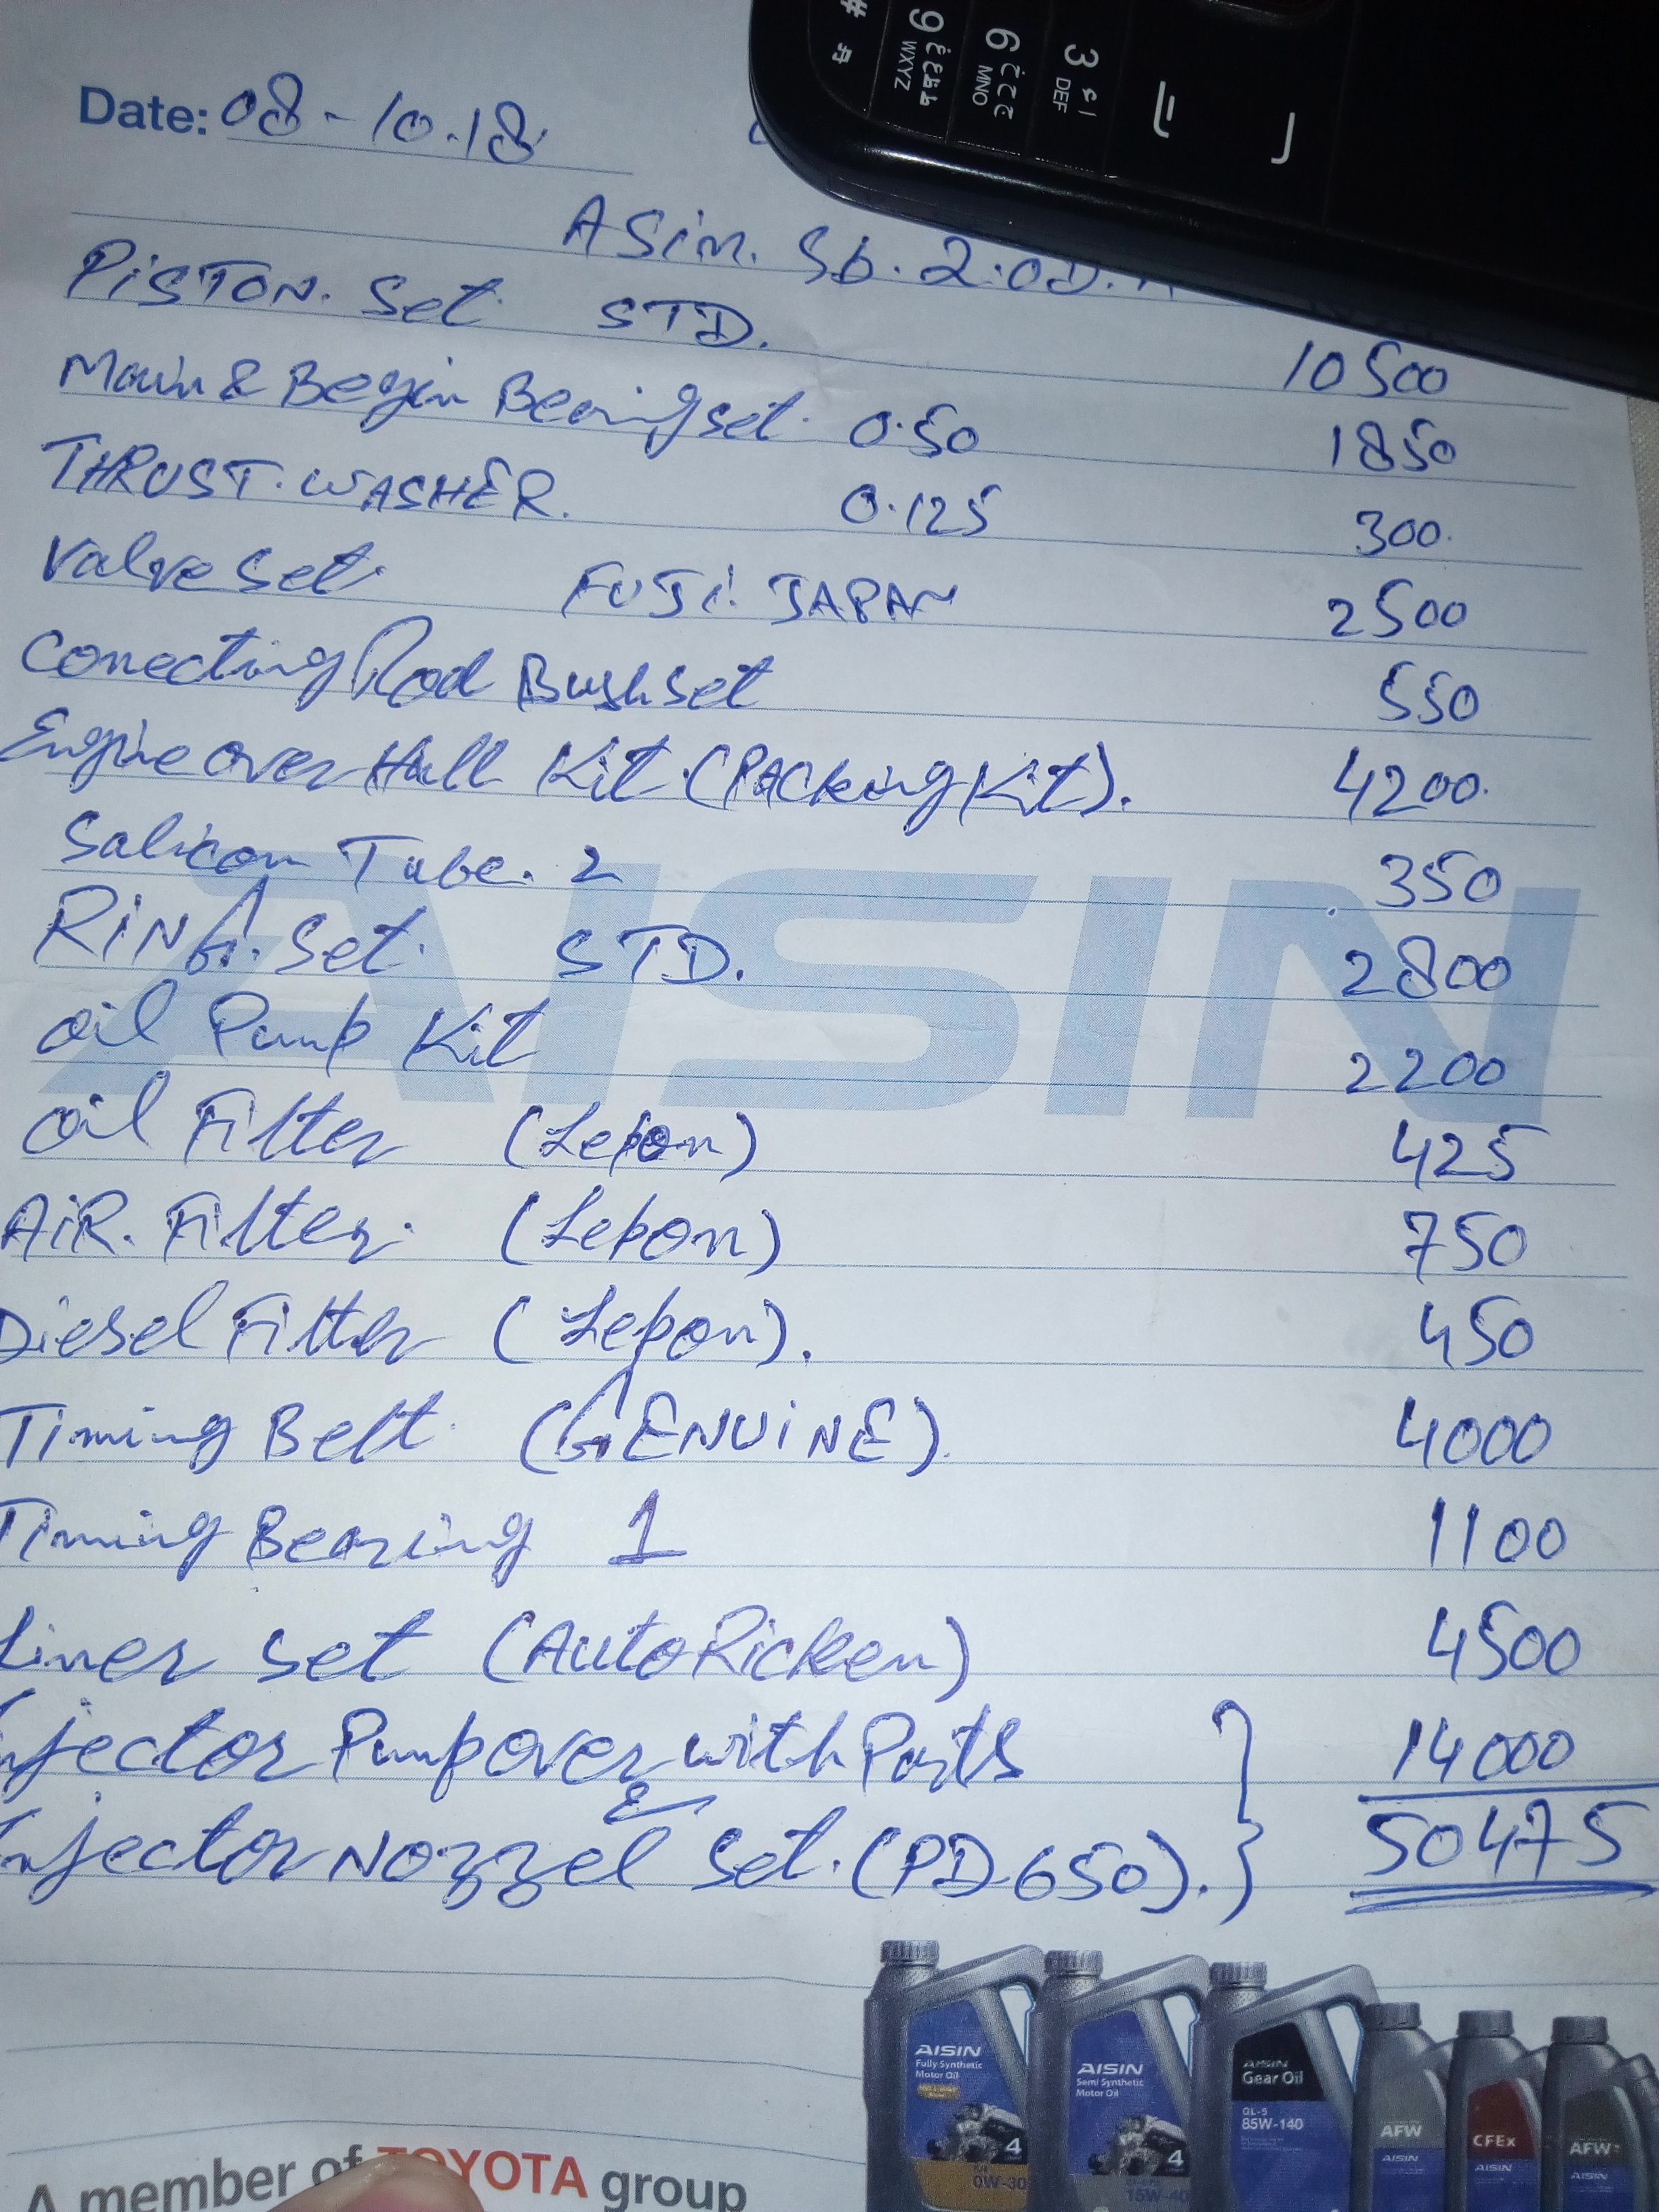 Date: 08-10.18
ASim. Sb. 2.0D.
PiSTON. Set STD. 10500
Main & Begin Bearing set. 0.50 1850
THRUST. WASHER. 0.125 300.
Valve Set. FUJi. JAPAN 2500
Conecting Rod Bush set 550
Engine over Hall Kit. (PACking Kit). 4200.
Salicon Tube. 2 350
RiNG. Set. STD. 2800
oil Pump Kit 2200
oil Filter (Lepon) 425
AiR. Filter. (Lepon) 750
Diesel Filter (Lepon). 450
Timing Belt. (GENUiNE). 4000
Timing Bearing 1 1100
Liner set (AutoRicken) 4500
njector Pump over with Parts 14000
&
njector Nozzel Set. (PD650). 50475
AISIN
AISIN
Fully Synthetic
Motor Oil
4
0W-30
AISIN
Semi Synthetic
Motor Oil
4
15W-40
AISIN
Gear Oil
GL-5
85W-140
AFW
AISIN
CFEx
AISIN
AFW+
AISIN
A member of TOYOTA group
#
9
WXYZ
6
MNO
3
DEF